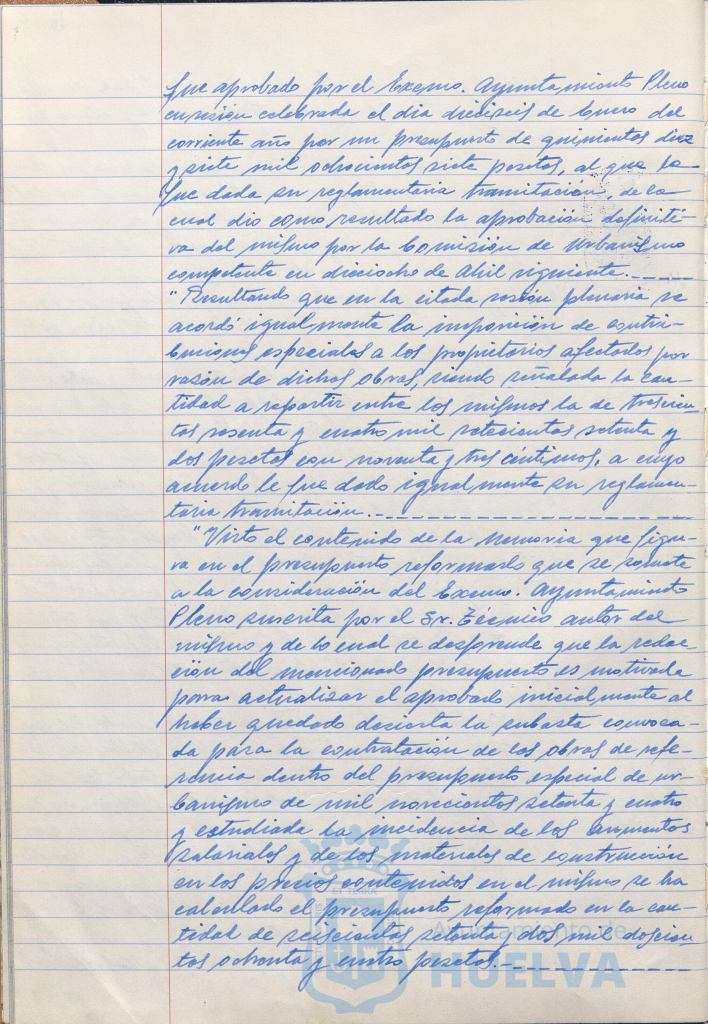 fue aprobado por el Excmo. Ayuntamiento Pleno
en sesión celebrada el dia dieciseis de Enero del
corriente año por un presupuesto de quinientas diez
y siete mil ochocientas siete pesetas, al que le
fue dada su reglamentaria tramitación, de la
cual dio como resultado la aprobación definiti-
va del mismo por la Comisión de Urbanismo
competente en dieciocho de Abril siguiente.
"Resultando que en la citada sesión plenaria se
acordó igualmente la imposición de contri-
buciones especiales a los propietarios afectados por
razón de dichas obras, siendo señalada la can-
tidad a repartir entre los mismos la de trescien-
tas sesenta y cuatro mil setecientas setenta y
dos pesetas con noventa y tres céntimos, a cuyo
acuerdo le fue dado igualmente su reglamen-
taria tramitación.
"Visto el contenido de la Memoria que figu-
ra en el presupuesto reformado que se somete
a la consideración del Excmo. Ayuntamiento
Pleno suscrita por el Sr. Técnico autor del
mismo y de lo cual se desprende que la redac-
ción del mencionado presupuesto es motivada
para actualizar el aprobado inicialmente al
haber quedado desierta la subasta convoca-
da para la contratación de las obras de refe-
rencia dentro del presupuesto especial de ur-
banismo de mil novecientos setenta y cuatro
y estudiada la incidencia de los aumentos
salariales y de los materiales de construcción
en los precios contenidos en el mismo se ha
calculado el presupuesto reformado en la can-
tidad de seiscientas setenta y dos mil doscien-
tas ochenta y cuatro pesetas.
Ayuntamiento de
HUELVA